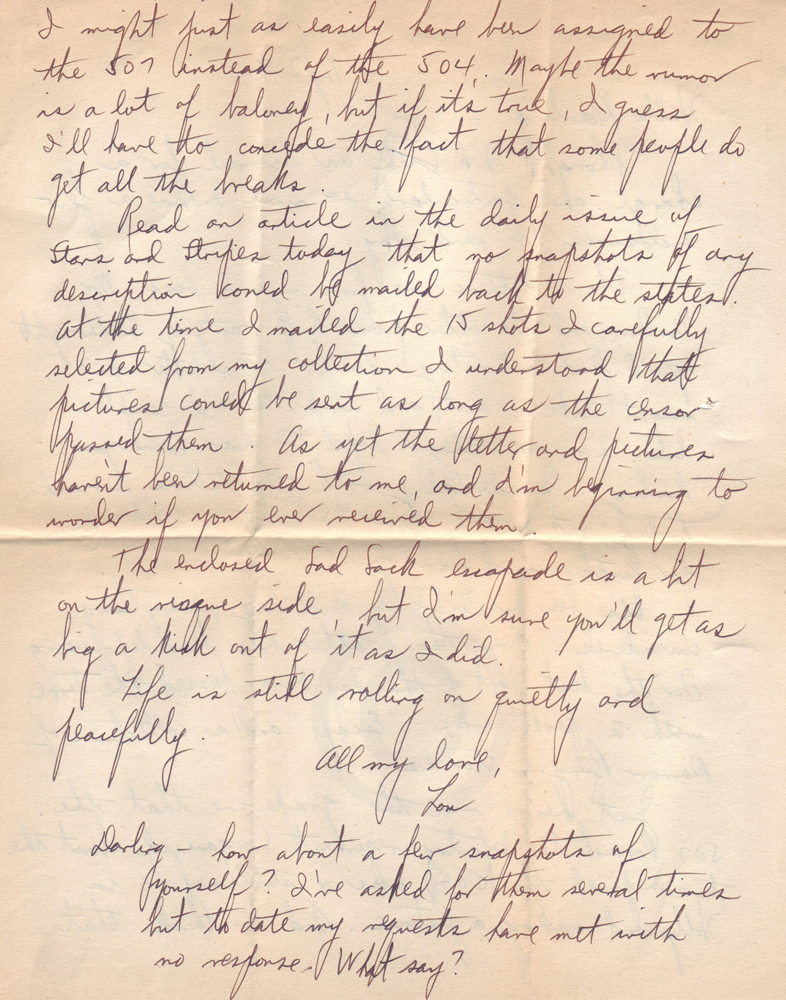 I might just as easily have been assigned to
the 507 instead of the 504. Maybe the rumor
is a lot of baloney, but if it's true, I guess
I'll have to concede the fact that some people do
get all the breaks.
Read an article in the daily issue of
Stars and Stripes today that no snapshots of any
description could be mailed back to the states.
At the time I mailed the 15 shots I carefully
selected from my collection I understood that
pictures could be sent as long as the censor
passed them. As yet the letter and pictures
haven't been returned to me, and I'm beginning to
wonder if you ever received them.
The enclosed Sad Sack escapade is a bit
on the risque side, but I'm sure you'll get as
big a kick out of it as I did.
Life is still rolling on quietly and
peacefully.
All my love,
Lou
Darling - how about a few snapshots of
yourself? I've asked for them several times
but to date my requests have met with
no response. What say?